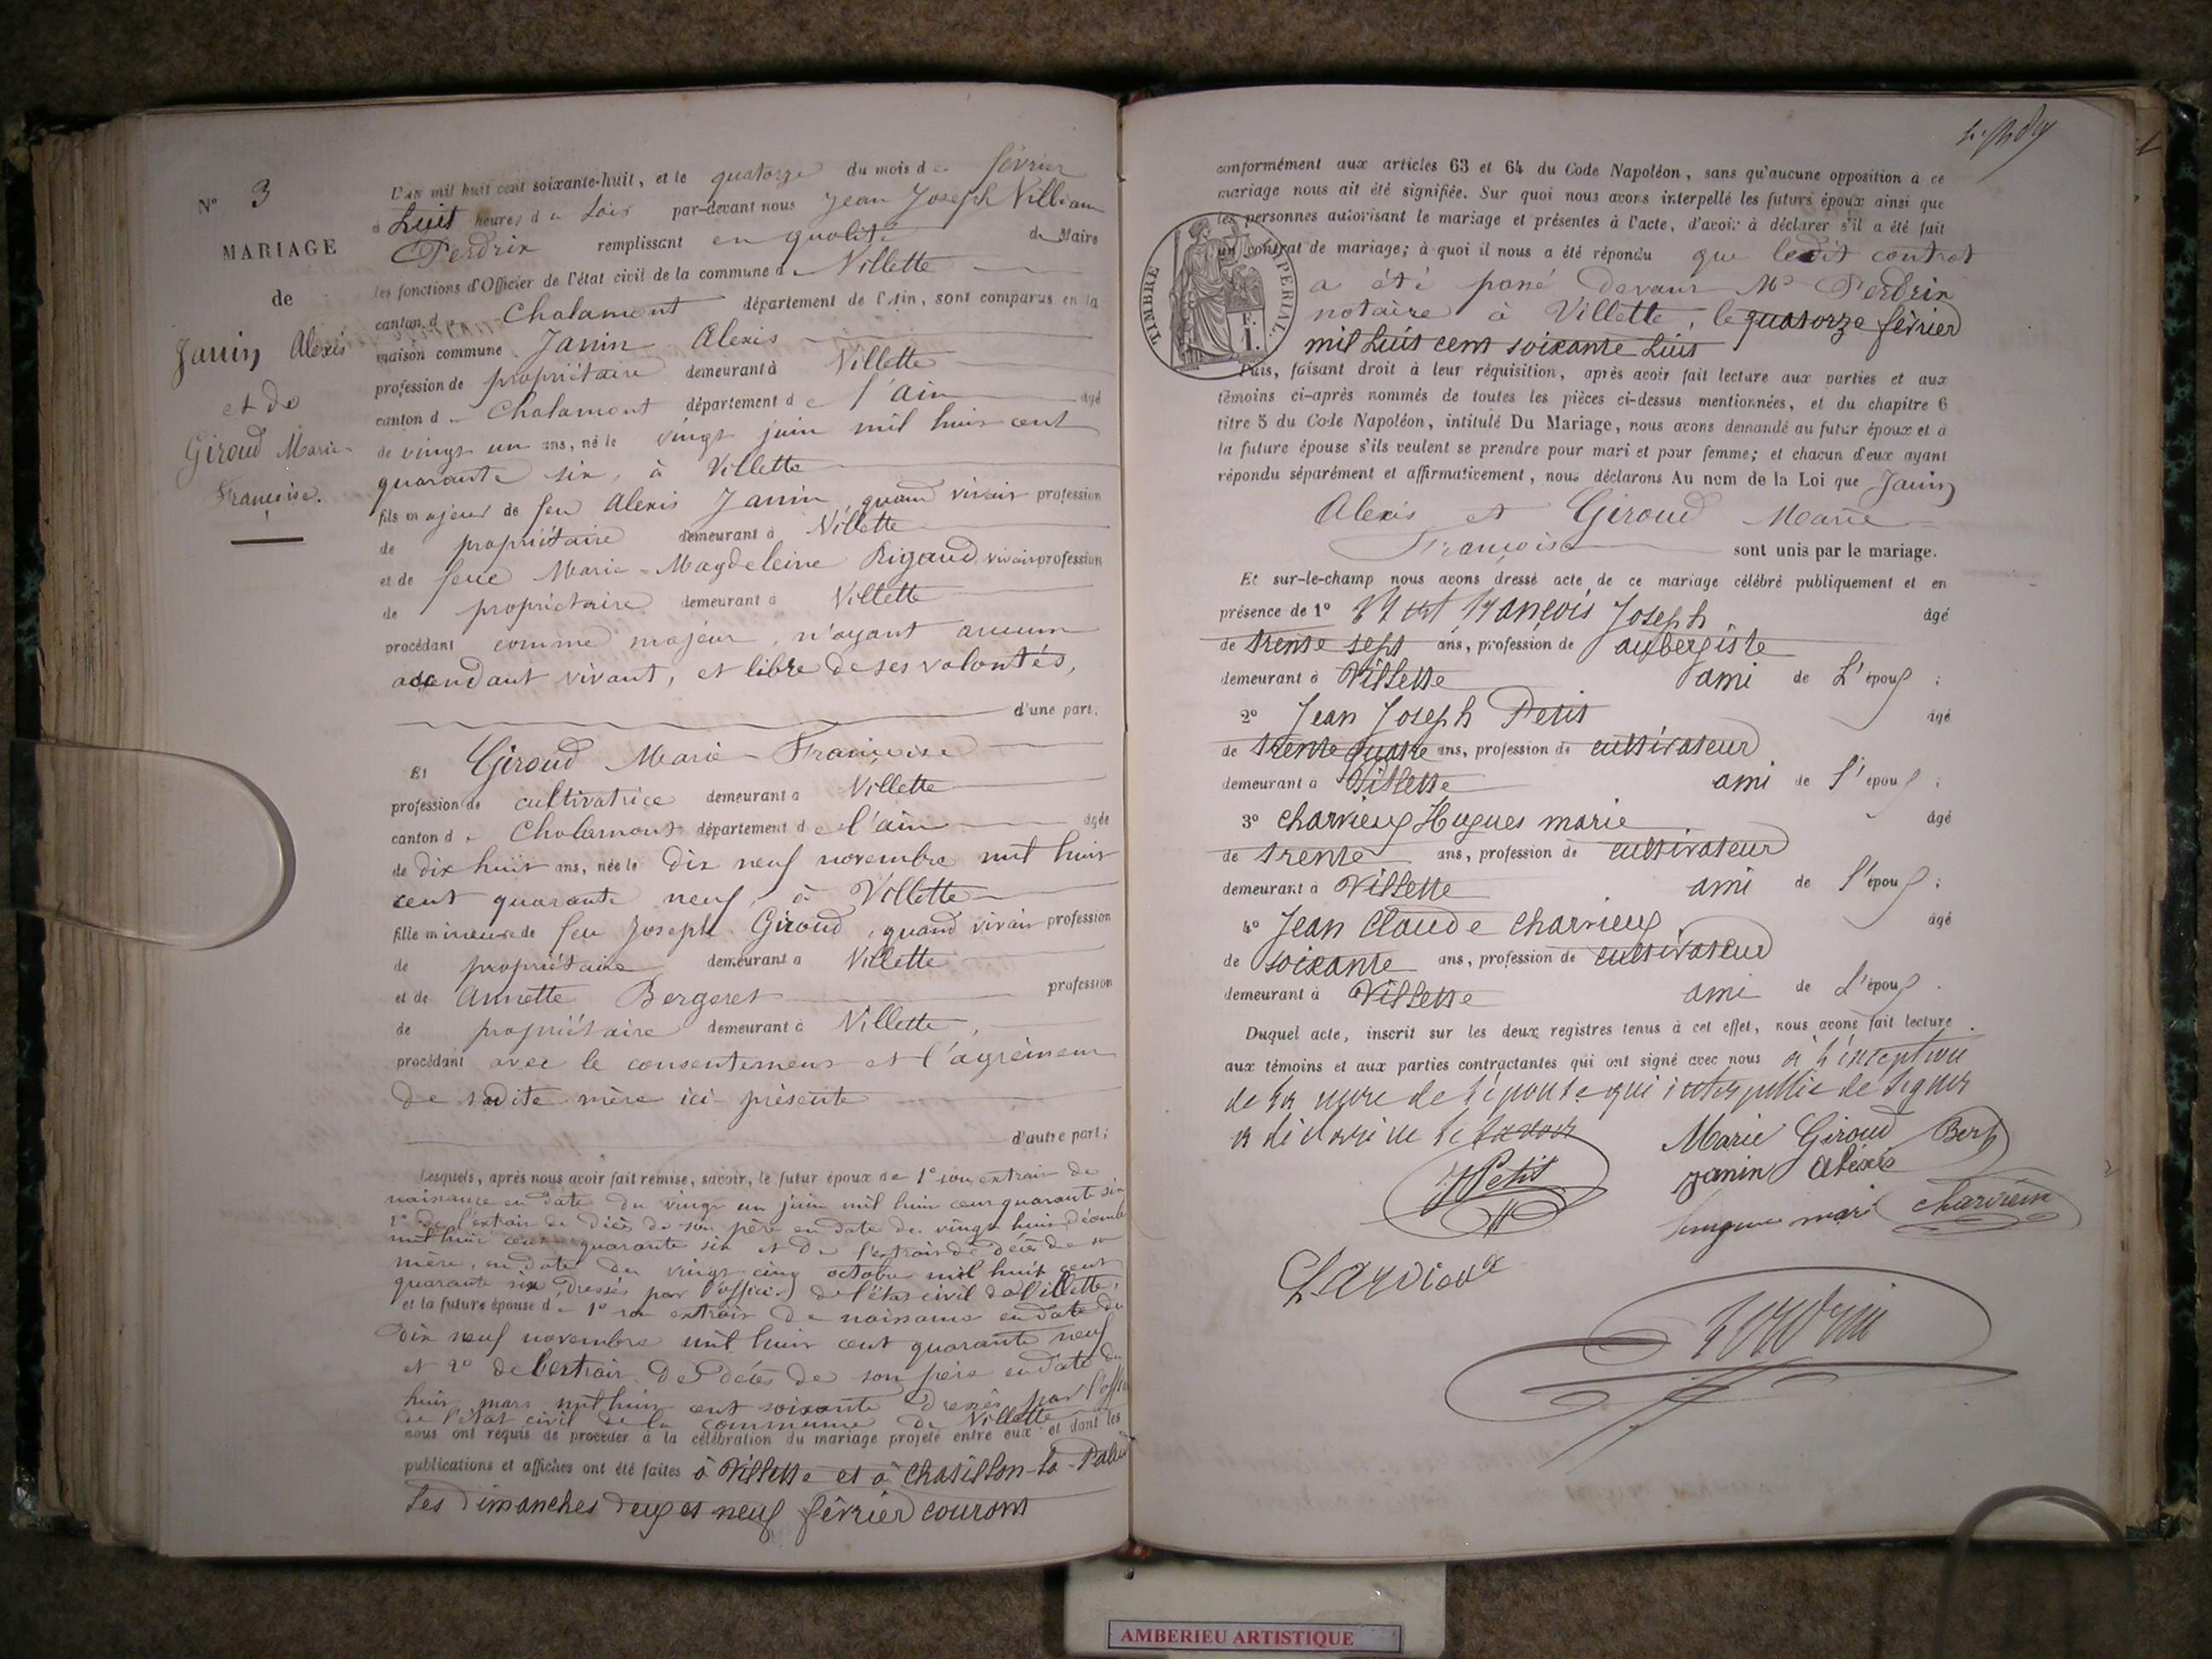 N° 3
MARIAGE
de
Janin Alexis
et de
Giroud Marie-
Françoise.
L'an mil huit cent soixante-huit, et le quatorze du mois de février
à huit heures du soir par-devant nous Jean Joseph Villiam
Perdrix remplissant en qualité de Maire
les fonctions d'Officier de l'état civil de la commune de Villette
canton de Chalamont département de l'Ain, sont comparus en la
maison commune Janin Alexis
profession de propriétaire demeurant à Villette
canton de Chalamont département de l'ain âgé
de vingt un ans, né le vingt juin mil huit cent
quarante six, à Villette
fils majeur de feu Alexis Janin, quand vivait profession
de propriétaire demeurant à Villette
et de feue Marie-Magdeleine Rigaud, vivait profession
de propriétaire demeurant à Villette
procédant comme majeur, n'ayant aucun
ascendant vivant, et libre de ses volontés,
d'une part.
Et Giroud Marie-Françoise
profession de cultivatrice demeurant à Villette
canton de Chalamont département de l'ain âgée
de dix huit ans, née le dix neuf novembre mil huit
cent quarante neuf, à Villette
fille mineure de feu Joseph Giroud, quand vivait profession
de propriétaire demeurant à Villette
et de Annette Bergeret profession
de propriétaire demeurant à Villette,
procédant avec le consentement et l'agrément
de sadite mère ici présente
d'autre part;
Lesquels, après nous avoir fait remise, savoir, le futur époux de 1° son extrait de
naissance en date du vingt un juin mil huit cent quarante six
2° de l'extrait de décès de son père en date du vingt huit décembre
mil huit cent quarante six et de l'extrait de décès de sa
mère, en date du vingt cinq octobre mil huit cent
quarante six, dressés par l'officier de l'état civil de Villette,
et la future épouse de 1° son extrait de naissance en date du
dix neuf novembre mil huit cent quarante neuf
et 2° de l'extrait de décès de son père en date du
huit mars mil huit cent soixante dressés par l'offi
de l'état civil de la commune de Villette
nous ont requis de procéder à la célébration du mariage projeté entre eux et dont les
publications et affiches ont été faites à Villette et à Chatillon-la-Palud
les dimanches deux et neuf février courant
conformément aux articles 63 et 64 du Code Napoléon, sans qu'aucune opposition à ce
mariage nous ait été signifiée. Sur quoi nous avons interpellé les futurs époux ainsi que
les personnes autorisant le mariage et présentes à l'acte, d'avoir à déclarer s'il a été fait
un contrat de mariage; à quoi il nous a été répondu que ledit contrat
a été passé devant Me Perdrix
notaire à Villette, le quatorze février
mil huit cent soixante huit
TIMBRE IMPERIAL.
F.
1.
Puis, faisant droit à leur réquisition, après avoir fait lecture aux parties et aux
témoins ci-après nommés de toutes les pièces ci-dessus mentionnées, et du chapitre 6
titre 5 du Code Napoléon, intitulé Du Mariage, nous avons demandé au futur époux et à
la future épouse s'ils veulent se prendre pour mari et pour femme; et chacun d'eux ayant
répondu séparément et affirmativement, nous déclarons Au nom de la Loi que Janin
Alexis et Giroud Marie
Françoise sont unis par le mariage.
Et sur-le-champ nous avons dressé acte de ce mariage célébré publiquement et en
présence de 1° françois Joseph âgé
de trente sept ans, profession de aubergiste
demeurant à Villette ami de L'époux;
2° Jean Joseph Petit âgé
de trente quatre ans, profession de cultivateur
demeurant à Villette ami de l'époux;
3° charvieux Hugues marie âgé
de trente ans, profession de cultivateur
demeurant à Villette ami de l'époux;
4° Jean Claude charvieux âgé
de soixante ans, profession de cultivateur
demeurant à Villette ami de L'époux.
Duquel acte, inscrit sur les deux registres tenus à cet effet, nous avons fait lecture
aux témoins et aux parties contractantes qui ont signé avec nous à l'exception
de la mère de l'épouse qui interpellée de signer
a déclaré ne le savoir
Marie Giroud
JJ Petit
Janin Alexis
charvieux
Charvieux
Perdrix
AMBERIEU ARTISTIQUE